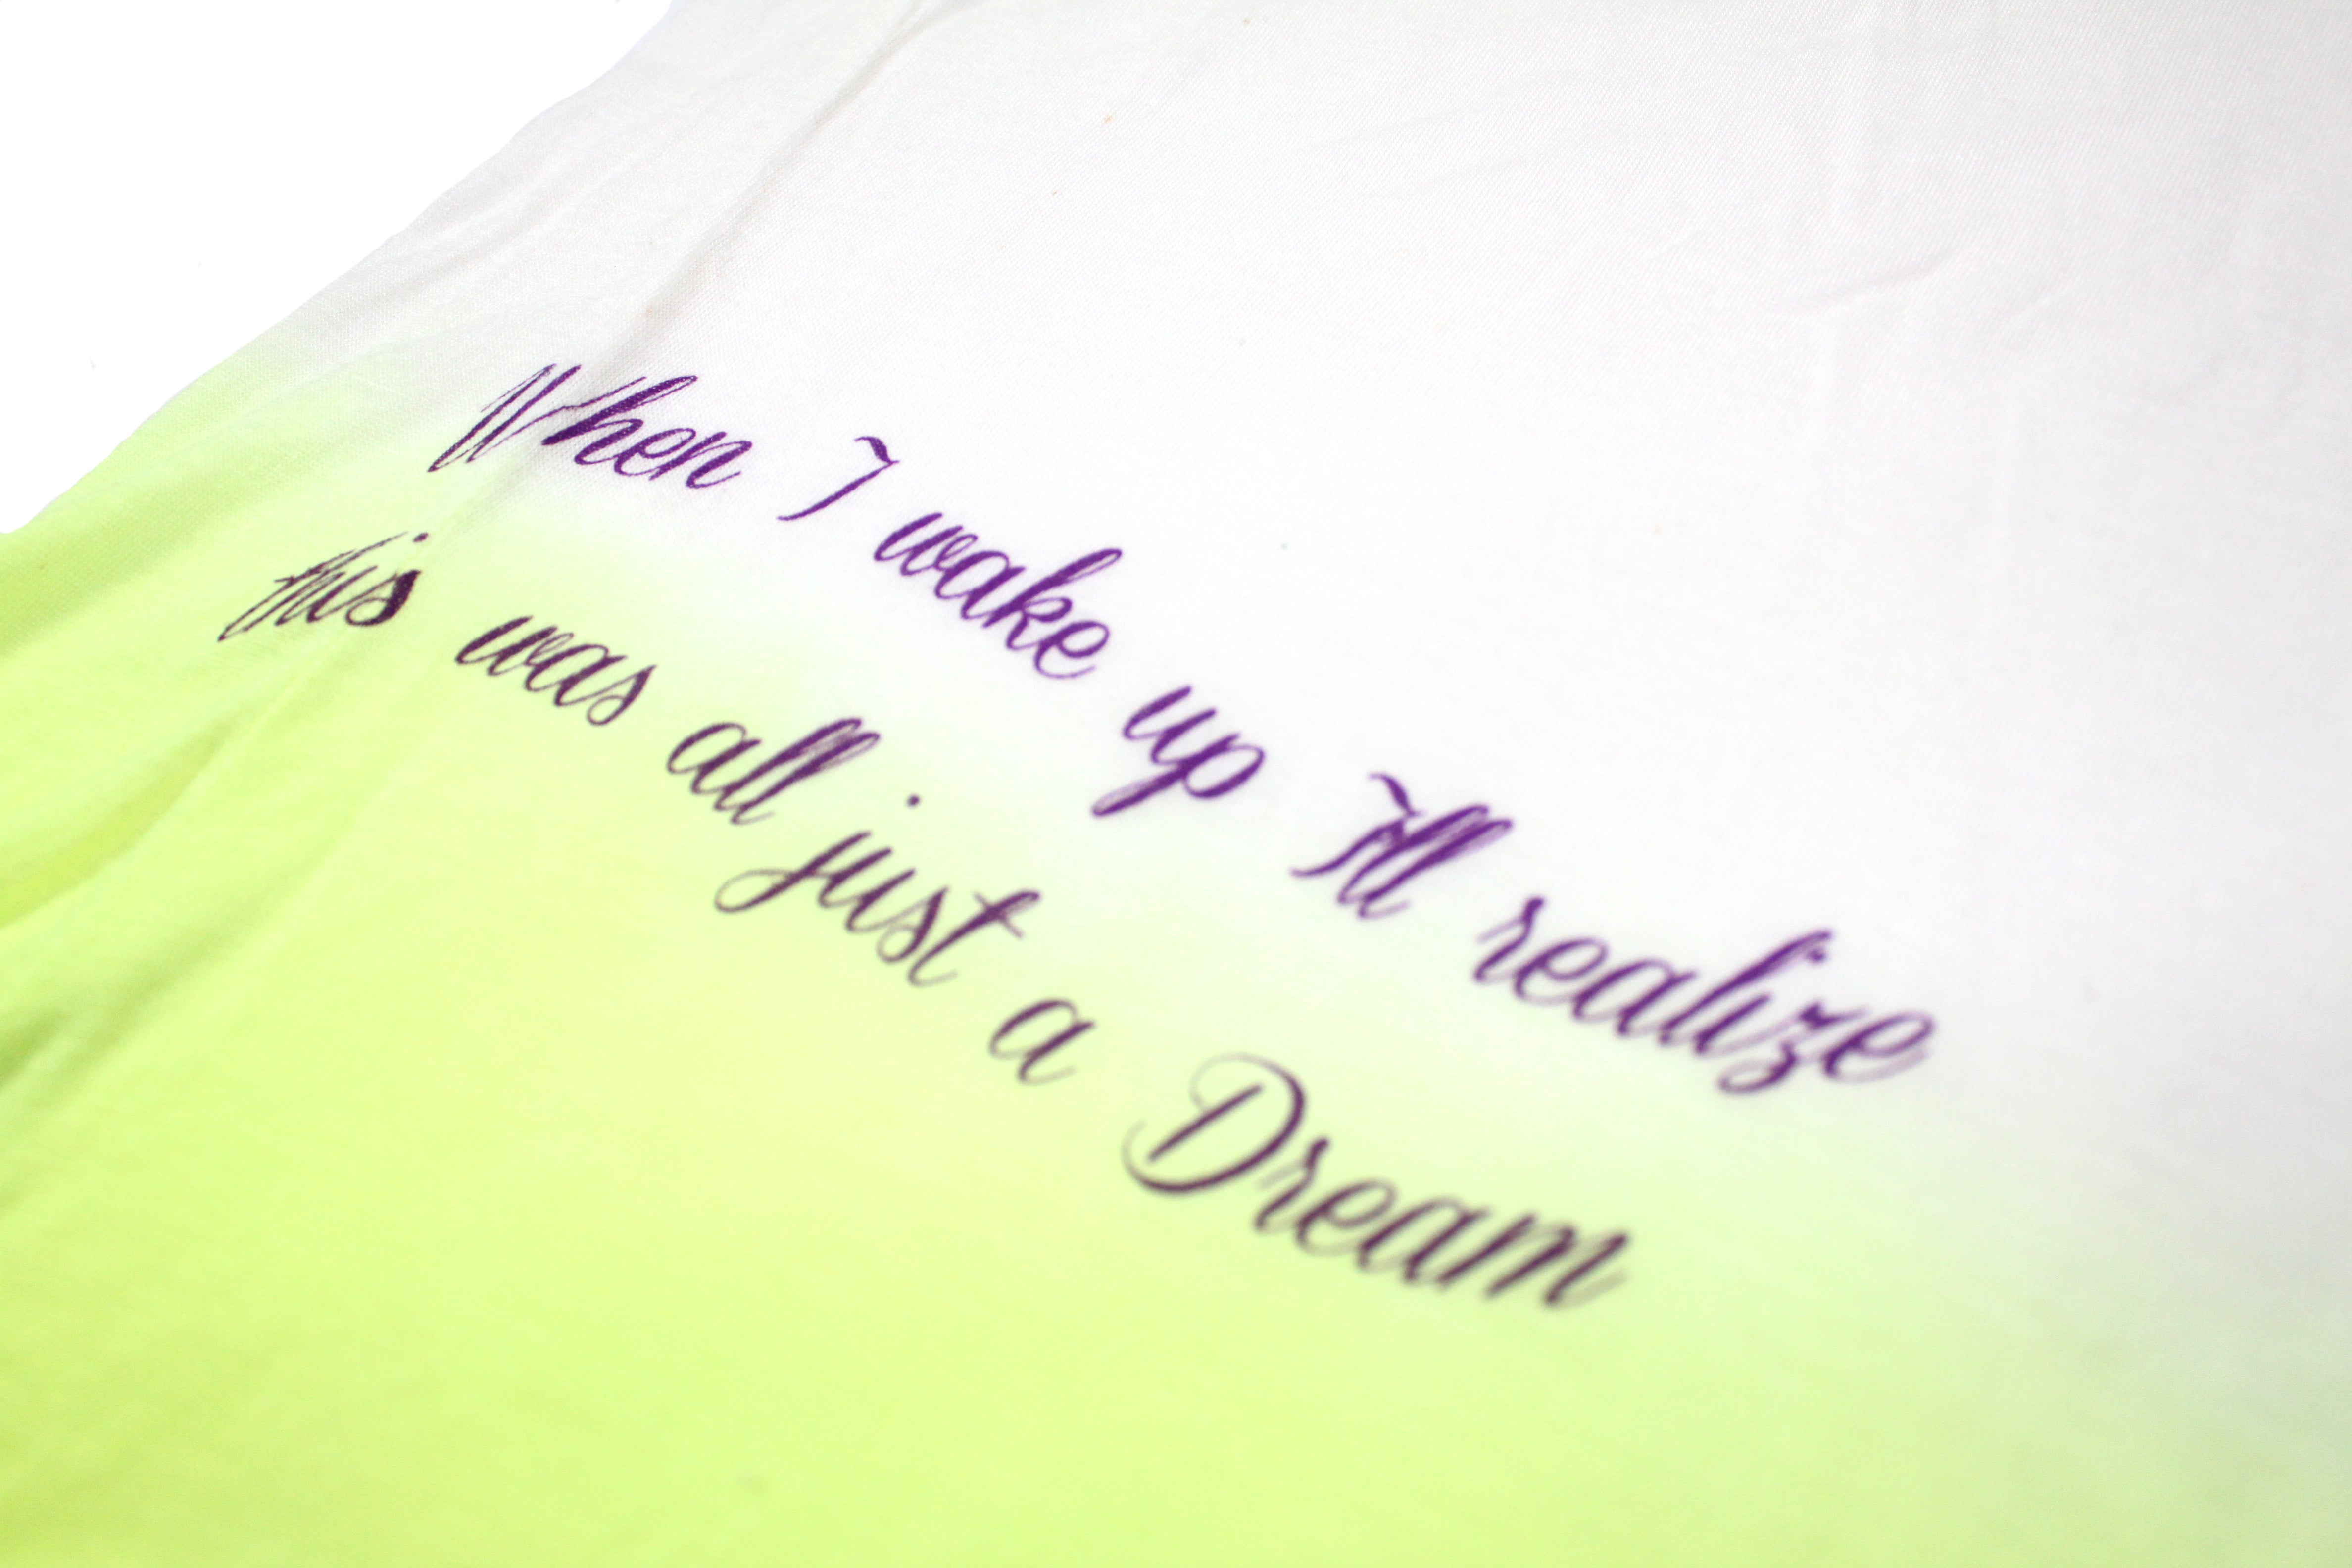 When I wake up I'll realize
this was all just a Dream